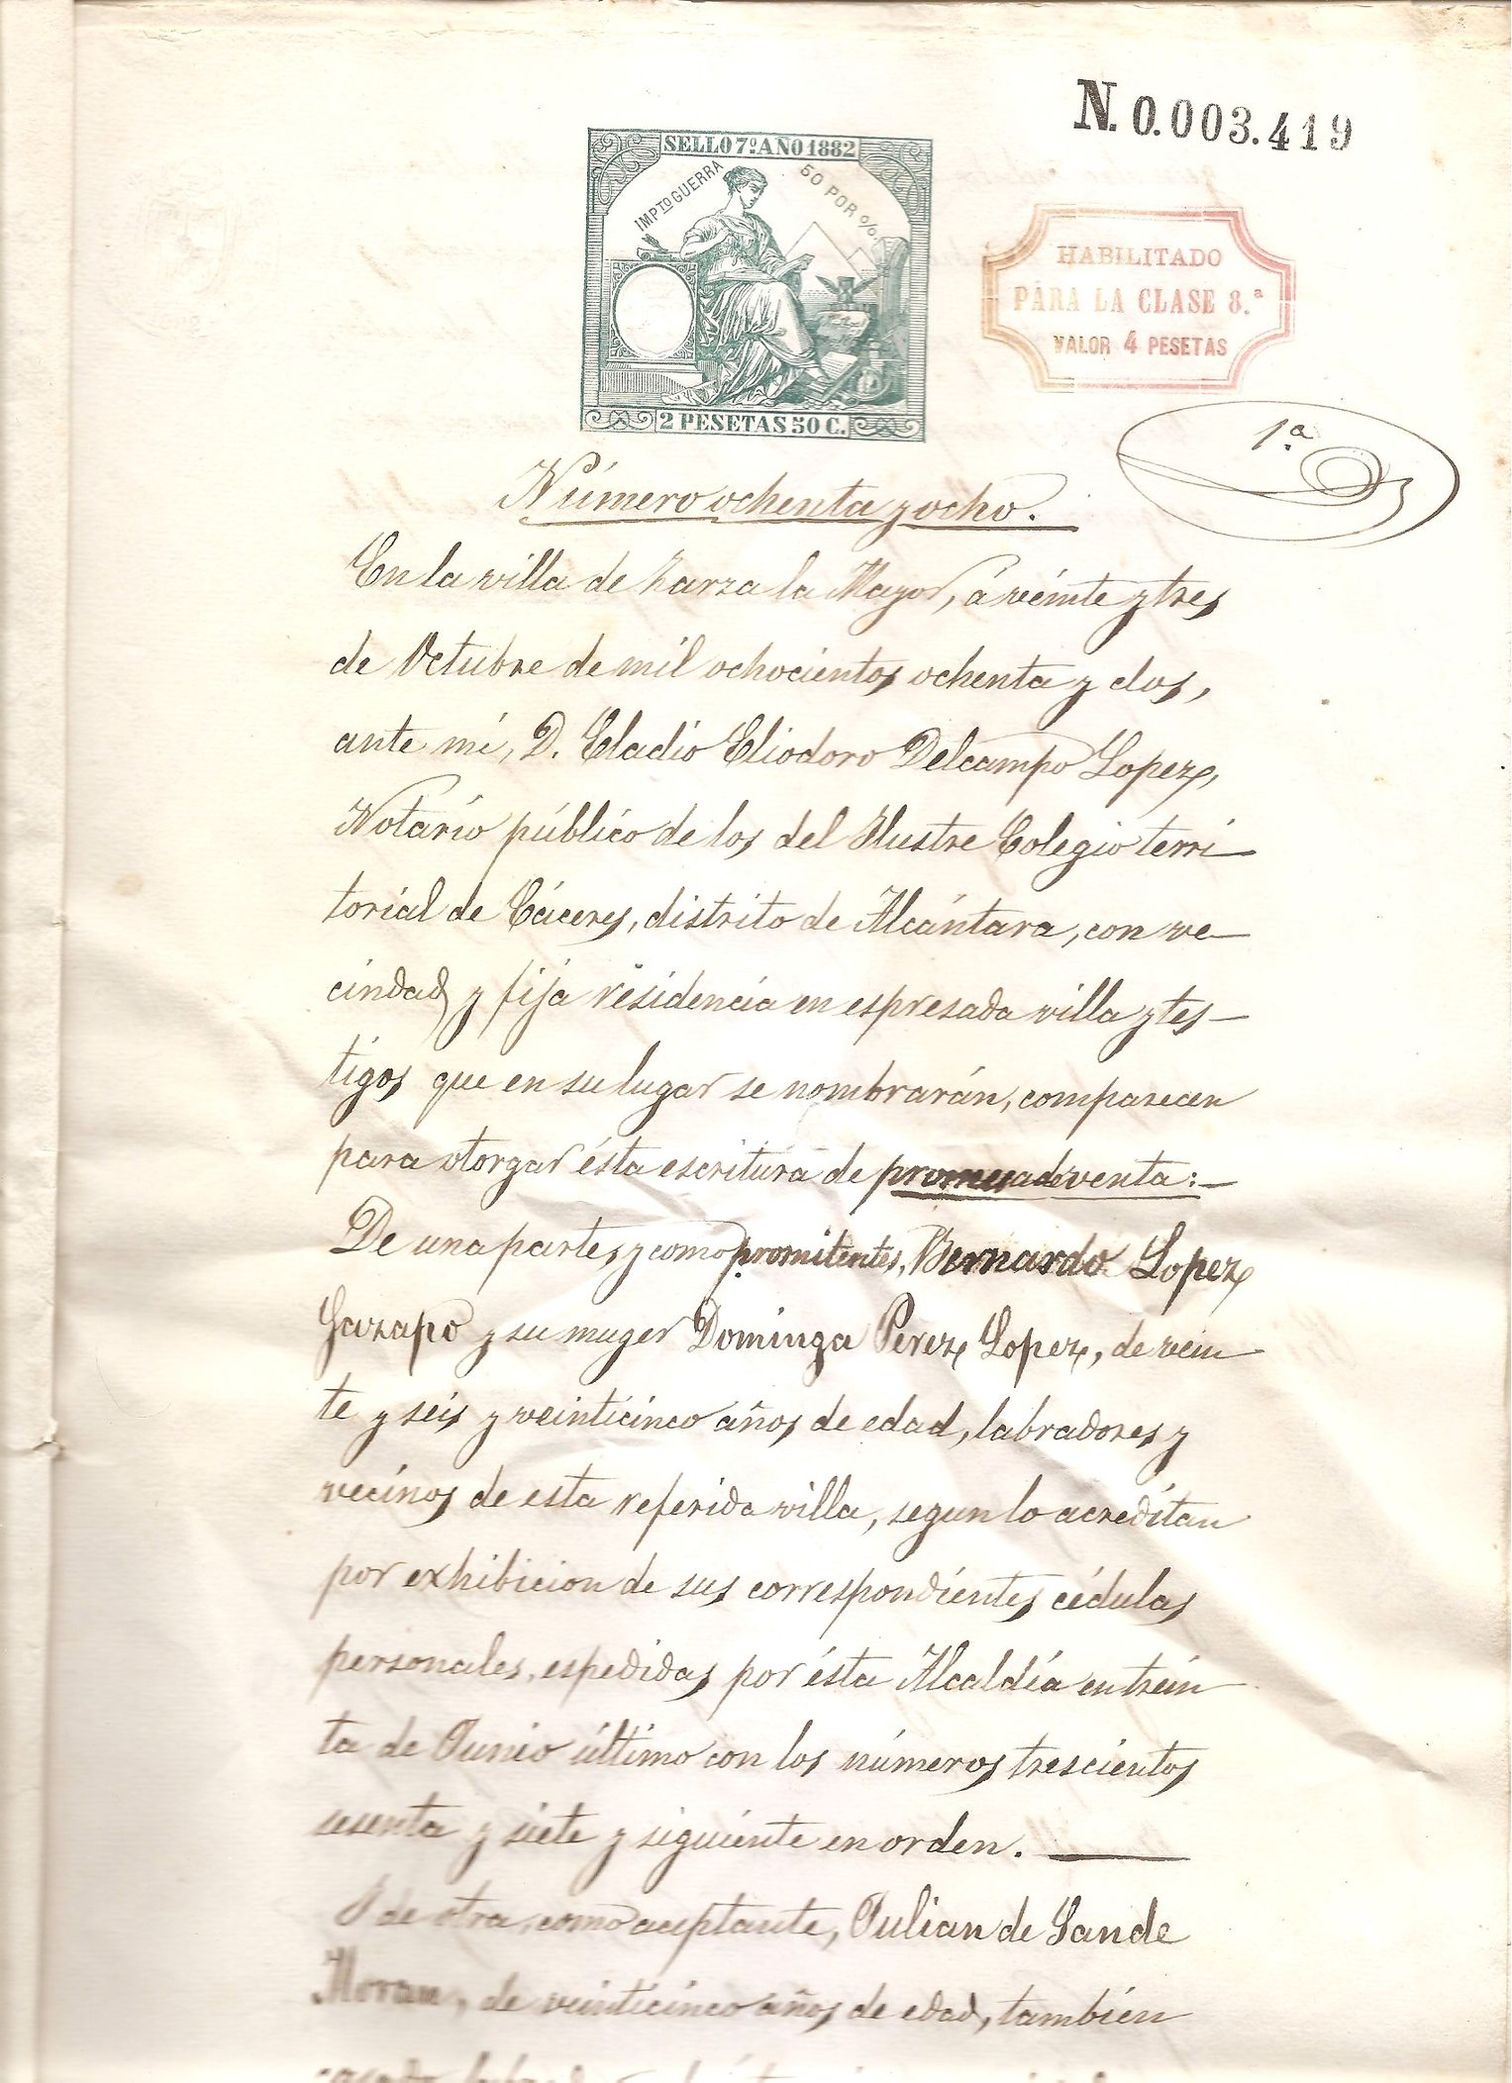 N. 0.003.419
SELLO 7º AÑO 1882
IMPTO GUERRA 50 POR %
2 PESETAS 50 C.
HABILITADO
PARA LA CLASE 8.ª
VALOR 4 PESETAS
1.ª
Número ochenta y ocho.
En la villa de Zarza la Mayor, á veinte y tres
de Octubre de mil ochocientos ochenta y dos,
ante mí, D. Eladio Eliodoro Delcampo Lopez,
Notario público de los del Ilustre Colegio terri
torial de Cáceres, distrito de Alcántara, con ve—
cindad y fija residencia en espresada villa y tes—
tigos que en su lugar se nombrarán, comparecen
para otorgar ésta escritura de promesa de venta:—
De una parte, y como promitentes, Bernardo Lopez
Gazapo y su muger Dominga Perez Lopez, de vein
te y seis y veinticinco años de edad, labradores y
vecinos de esta referida villa, segun lo acreditan
por exhibicion de sus correspondientes cédulas
personales, espedidas por ésta Alcaldía en trein
ta de Junio último con los números trescientos
sesenta y siete y siguiente en orden.
I de otra, como aceptante, Julian de Sande
Moran, de veinticinco años de edad, también